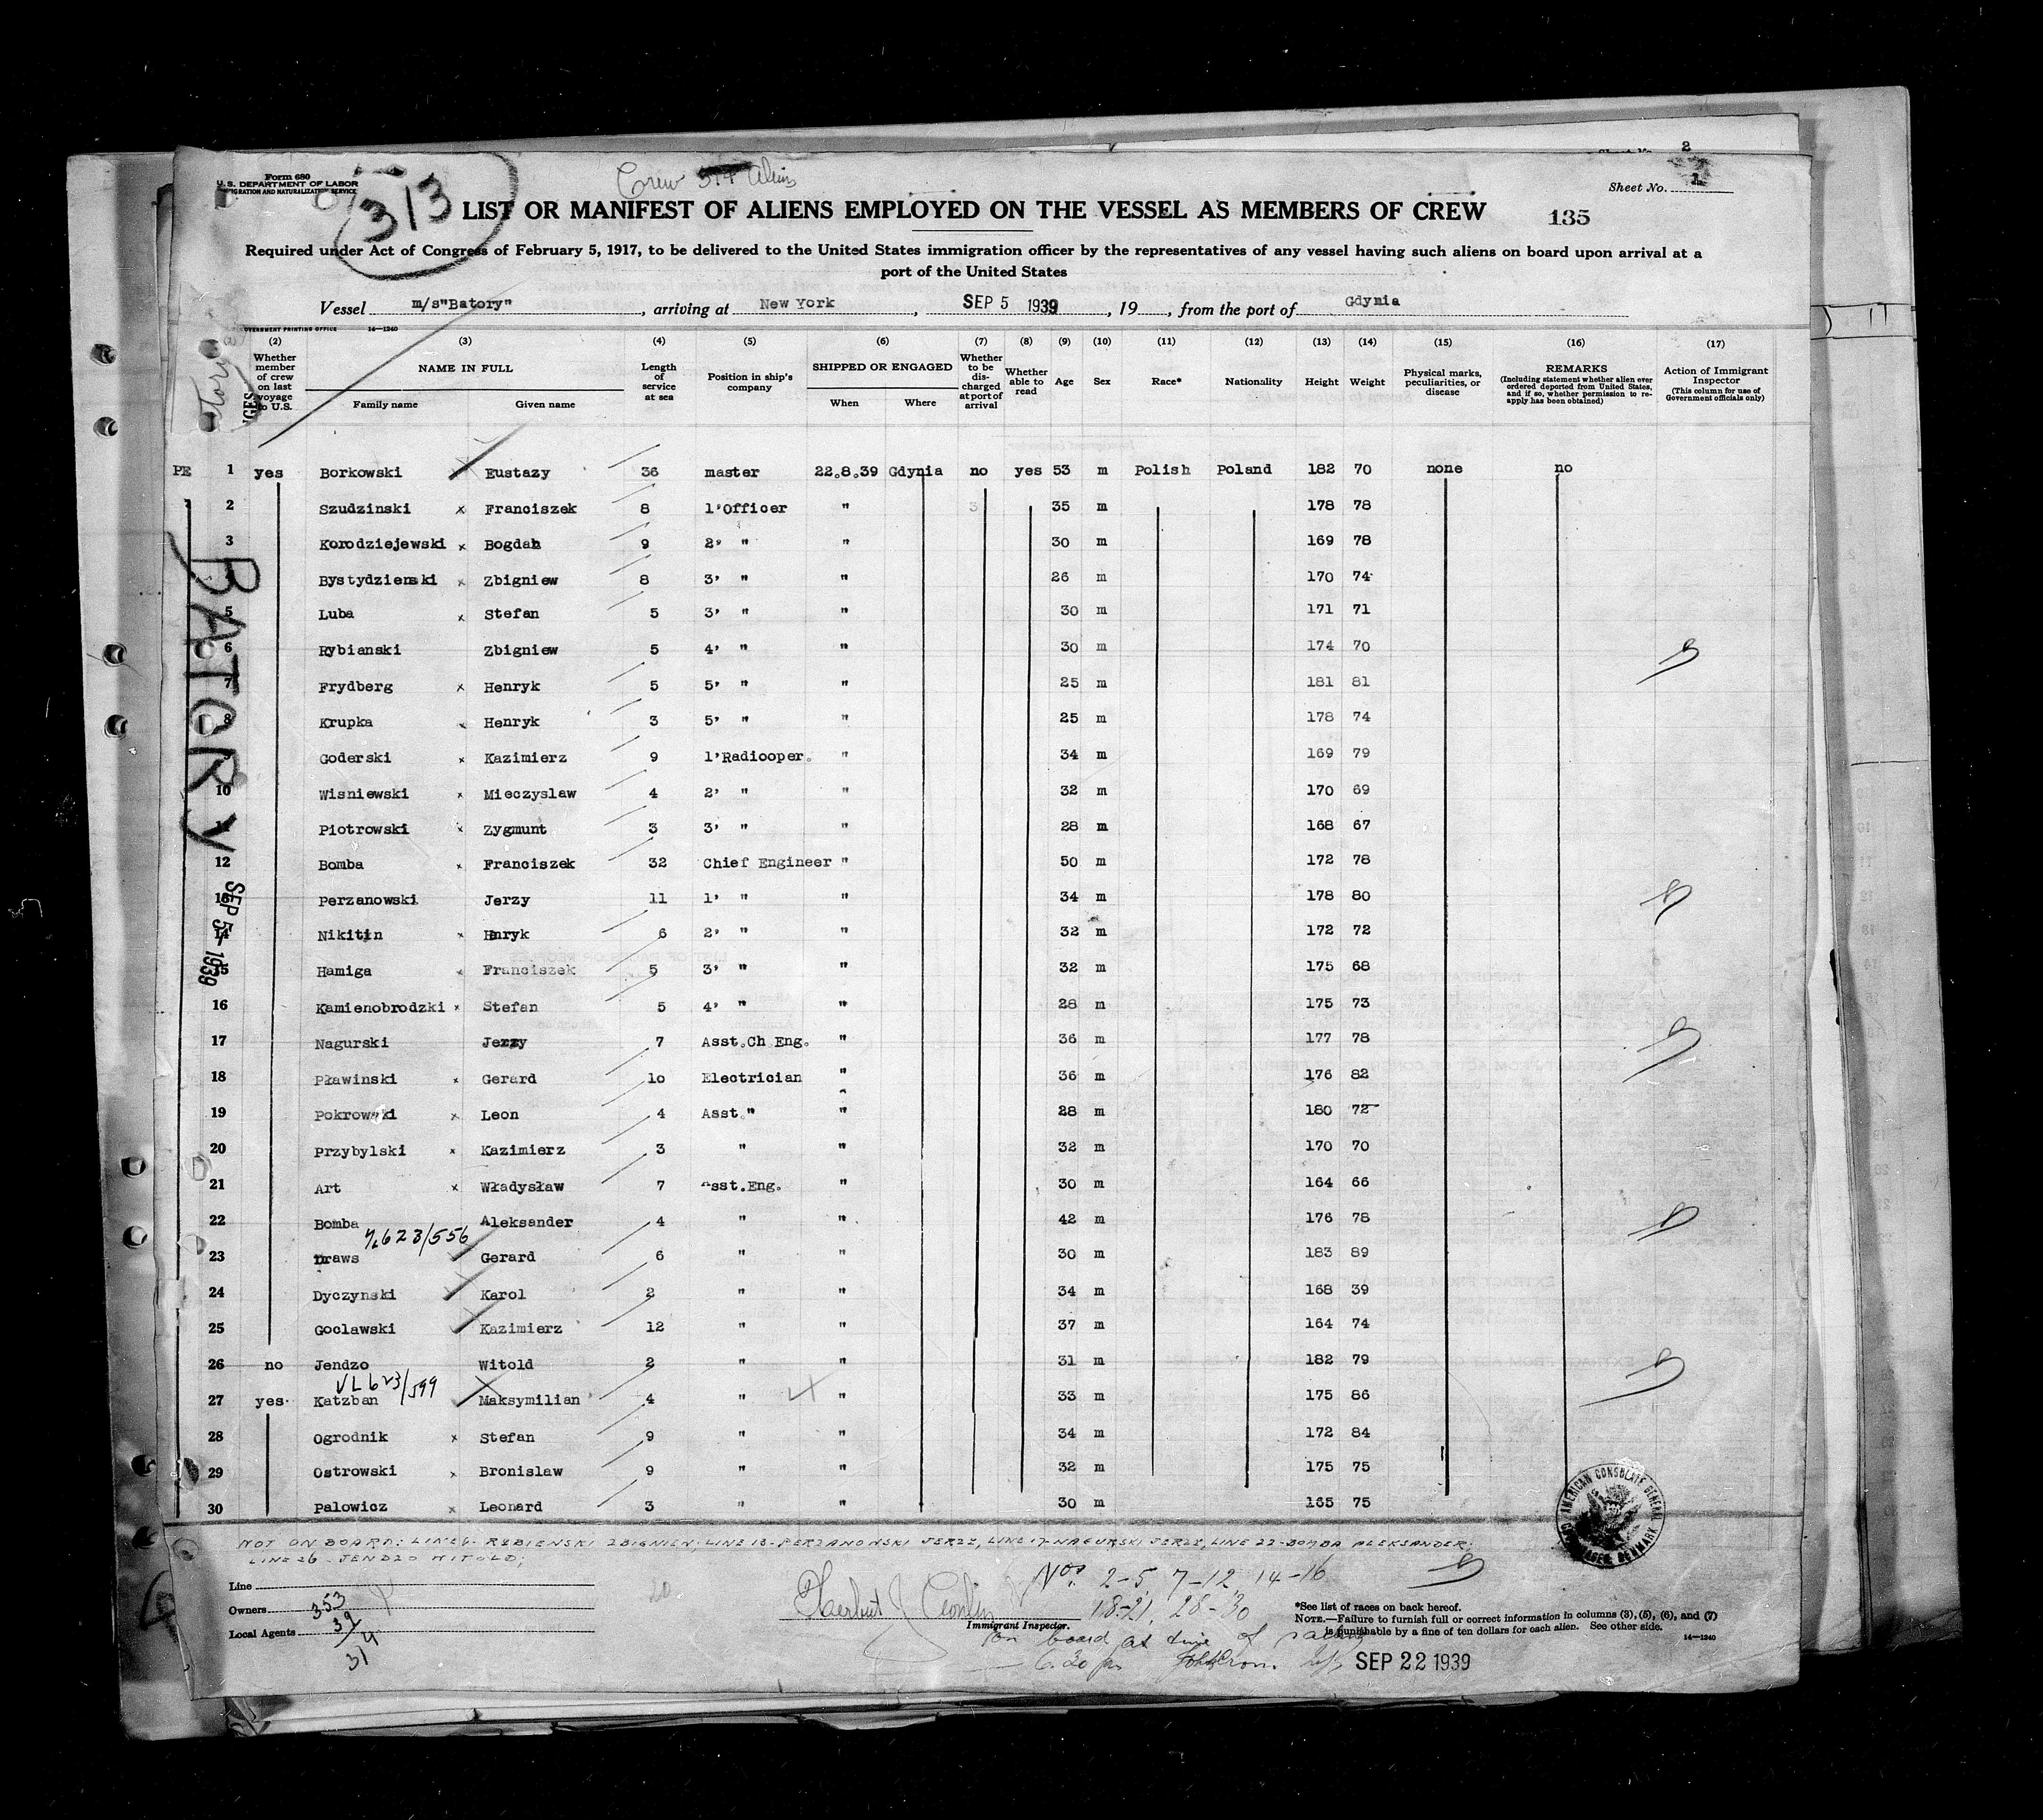 2
Form 680
U.S. DEPARTMENT OF LABOR
IMMIGRATION AND NATURALIZATION SERVICE
313
Crew 314 Aliens
Sheet No. 1
LIST OR MANIFEST OF ALIENS EMPLOYED ON THE VESSEL AS MEMBERS OF CREW
135
Required under Act of Congress of February 5, 1917, to be delivered to the United States immigration officer by the representatives of any vessel having such aliens on board upon arrival at a
port of the United States
Vessel m/s"Batory", arriving at New York, SEP 5 1939, 19, from the port of Gdynia
GOVERNMENT PRINTING OFFICE 14—1240
(2) (3) (4) (5) (6) (7) (8) (9) (10) (11) (12) (13) (14) (15) (16) (17)
Whether member of crew on last voyage to U.S.
NAME IN FULL
Family name Given name
Length of service at sea
Position in ship's company
SHIPPED OR ENGAGED
When Where
Whether to be discharged at port of arrival
Whether able to read
Age
Sex
Race*
Nationality
Height
Weight
Physical marks, peculiarities, or disease
REMARKS
(Including statement whether alien ever ordered deported from United States, and if so, whether permission to reapply has been obtained)
Action of Immigrant Inspector
(This column for use of Government officials only)
PE 1 yes Borkowski Eustazy 36 master 22.8.39 Gdynia no yes 53 m Polish Poland 182 70 none no
2 Szudzinski x Franciszek 8 1'Officer " 35 m 178 78
3 Korodziejewski x Bogdan 9 2' " " 30 m 169 78
Bystydzienski x Zbigniew 8 3' " " 26 m 170 74
5 Luba x Stefan 5 3' " " 30 m 171 71
6 Rybianski Zbigniew 5 4' " " 30 m 174 70
7 Frydberg x Henryk 5 5' " " 25 m 181 81
8 Krupka x Henryk 3 5' " " 25 m 178 74
Goderski x Kazimierz 9 1'Radiooper. " 34 m 169 79
10 Wisniewski x Mieczyslaw 4 2' " " 32 m 170 69
Piotrowski x Zygmunt 3 3' " " 28 m 168 67
12 Bomba x Franciszek 32 Chief Engineer " 50 m 172 78
13 Perzanowski Jerzy 11 1' " " 34 m 178 80
14 Nikitin x Henryk 6 2' " " 32 m 172 72
15 Hamiga x Franciszek 5 3' " " 32 m 175 68
16 Kamienobrodzki x Stefan 5 4' " " 28 m 175 73
17 Nagurski Jerzy 7 Asst.Ch Eng. " 36 m 177 78
18 Pławinski x Gerard 10 Electrician " 36 m 176 82
19 Pokrowski x Leon 4 Asst." " 28 m 180 72
20 Przybylski x Kazimierz 3 " " 32 m 170 70
21 Art x Władysław 7 Asst.Eng. " 30 m 164 66
22 Bomba Aleksander 4 " " 42 m 176 78
623/556
23 Draws Gerard 6 " " 30 m 183 89
24 Dyczynski Karol 2 " " 34 m 168 39
25 Goclawski Kazimierz 12 " " 37 m 164 74
26 no Jendzo Witold 2 " " 31 m 182 79
VL 623/599
27 yes Katzban Maksymilian 4 " " 33 m 175 86
28 Ogrodnik x Stefan 9 " " 34 m 172 84
29 Ostrowski x Bronislaw 9 " " 32 m 175 75
30 Palowicz x Leonard 3 " " 30 m 165 75
BATORY
SEP 5 - 1939
AMERICAN CONSULATE GENERAL
COPENHAGEN DENMARK
NOT ON BOARD: LINE 6- RYBIENSKI ZBIGNIEW; LINE 13- PERZANOWSKI JERZY, LINE 17- NAGURSKI JERZY, LINE 22- BOMBA ALEKSANDER;
LINE 26 - JENDZO WITOLD;
Line
Owners
Local Agents
353
39
314
Immigrant Inspector.
Nos. 2-5, 7-12, 14-16
18-21, 28-30
on board at time of sailing
6.20 pm
SEP 22 1939
*See list of races on back hereof.
NOTE.—Failure to furnish full or correct information in columns (3), (5), (6), and (7)
is punishable by a fine of ten dollars for each alien. See other side.
14—1240